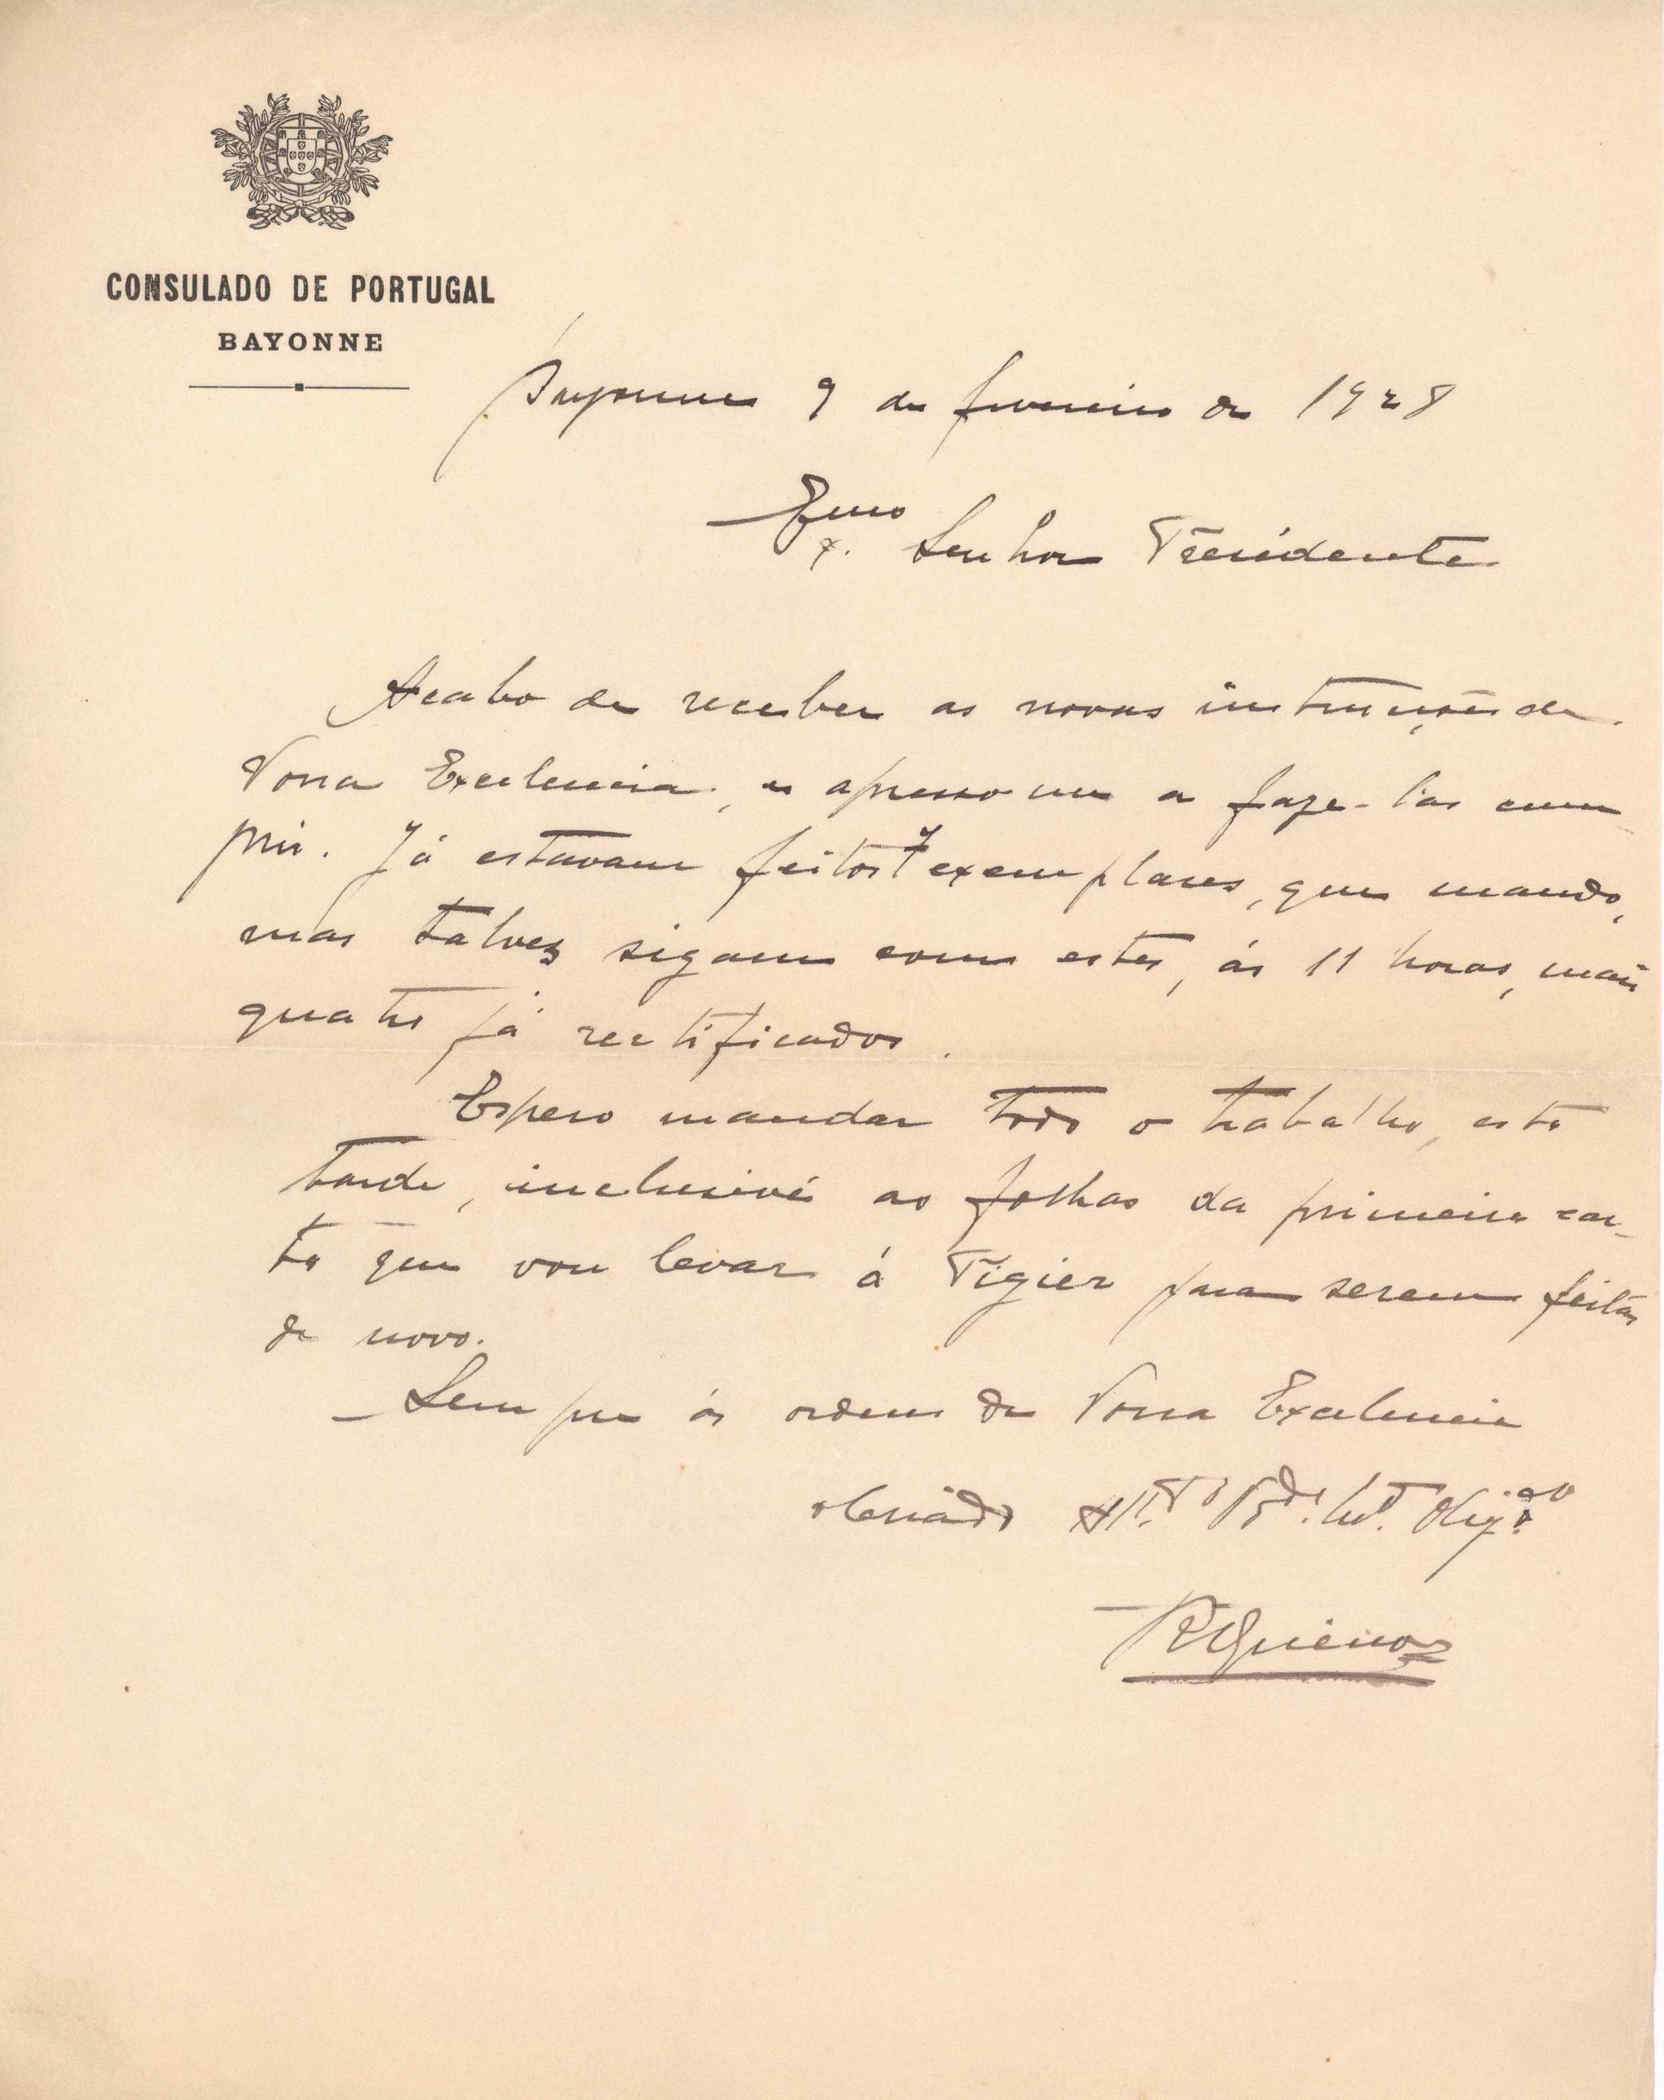 CONSULADO DE PORTUGAL
BAYONNE
Bayonne 9 de fevereiro de 1928
Exmo
Senhor Presidente
Acabo de receber as novas instruções de
Vossa Excelencia, e apresso me a faze-las cum
prir. Já estavam feitos 7 exemplares, que mando,
mas talvez sigam com estes, ás 11 horas, mais
quatro já rectificados.
Espero mandar todo o trabalho, esta
tarde, inclusivé as folhas da primeira car-
ta que vou levar á Tigier para serem feitas
de novo.
Sempre ás ordens de Vossa Excelencia
o Criádo